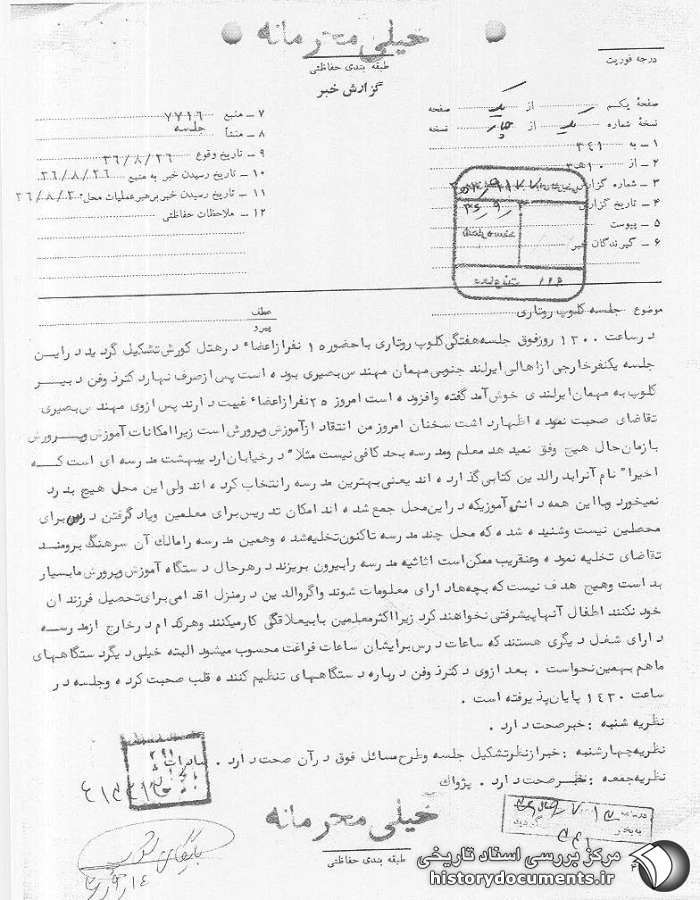 خیلی محرمانه
طبقه بندی حفاظتی
گزارش خبر
درجه فوریت
صفحهٔ یکم از یک صفحه
نسخهٔ شماره یک از چهار نسخه
۱ ـ به ۳۴۱
۲ ـ از ۱۰ هـ ۳
۳ ـ شماره گزارش
۴ ـ تاریخ گزارش
۵ ـ پیوست
۶ ـ گیرندگان خبر
۷ ـ منبع ۷۷۱۶
۸ ـ منشأ جلسه
۹ ـ تاریخ وقوع ۳۶/۸/۲۶
۱۰ ـ تاریخ رسیدن خبر به منبع ۳۶/۸/۲۶
۱۱ ـ تاریخ رسیدن خبر برهبر عملیات محل ۳۶/۸/۳۰
۱۲ ـ ملاحظات حفاظتی
موضوع جلسه کلوپ روتاری
عطف
پیرو
در ساعت ۱۳۰۰ روز فوق جلسه هفتگی کلوپ روتاری با حضور ۱۵ نفر از اعضاء در هتل کورش تشکیل گردید در این
جلسه یکنفر خارجی از اهالی ایرلند جنوبی مهمان مهندس بصیری بوده است پس از صرف نهار دکتر ذوفن دبیر
کلوپ به مهمان ایرلندی خوش آمد گفته وافزوده است امروز ۲۵ نفر از اعضاء غیبت دارند پس از وی مهندس بصیری
تقاضای صحبت نموده اظهار داشت سخنان امروز من انتقاد از آموزش وپرورش است زیرا امکانات آموزش وپرورش
با زمان حال هیچ وفق نمیدهد معلم ومدرسه بحد کافی نیست مثلا" در خیابان اردیبهشت مدرسه ای است که
اخیرا" نام آنرا بدرالدین کتابی گذارده اند یعنی بهترین مدرسه را انتخاب کرده اند ولی این محل هیچ بدرد
نمیخورد وبا این همه دانش آموزیکه در این محل جمع شده اند امکان تدریس برای معلمین ویاد گرفتن درس برای
محصلین نیست وشنیده شده که محل چند مدرسه تاکنون تخلیه شده وهمین مدرسه را مالک آن سرهنگ برومند
تقاضای تخلیه نموده وعنقریب ممکن است اثاثیه مدرسه را بیرون بریزند در هر حال دستگاه آموزش وپرورش ما بسیار
بد است وهیچ هدف نیست که بچه ها دارای معلومات شوند واگر والدین در منزل اقدامی برای تحصیل فرزندان
خود نکنند اطفال آنها پیشرفتی نخواهند کرد زیرا اکثر معلمین با بیعلاقگی کار میکنند وهر کدام در خارج از مدرسه
دارای شغل دیگری هستند که ساعات درس برایشان ساعات فراغت محسوب میشود البته خیلی دیگر دستگاههای
ما هم بهمین نحو است . بعد از وی دکتر ذوفن درباره دستگاههای تنظیم کننده قلب صحبت کرده وجلسه در
ساعت ۱۴۳۰ پایان پذیرفته است .
نظریه شنبه : خبر صحت دارد .
نظریه چهارشنبه : خبر از نظر تشکیل جلسه وطرح مسائل فوق در آن صحت دارد .
نظریه جمعه : خبر صحت دارد . پژواک
خیلی محرمانه
طبقه بندی حفاظتی
مرکز بررسی اسناد تاریخی
historydocuments.ir